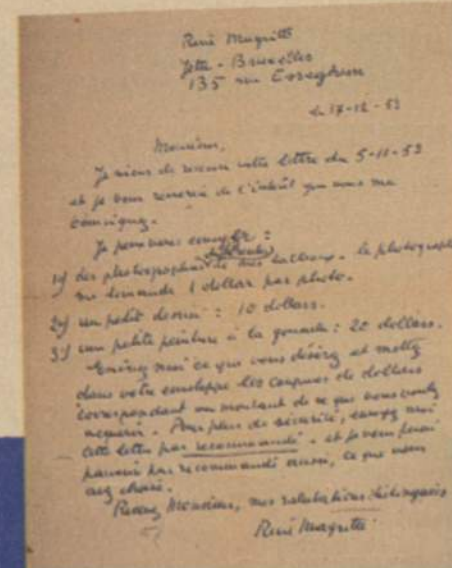 René Magritte
Jette - Bruxelles
135 rue Esseghem
le 17-12-53
Monsieur,
Je viens de recevoir votre lettre du 5-11-53
et je vous remercie de l'intérêt que vous me
témoignez.
Je peux vous envoyer :
1) des photographies de mes tableaux. le photographe
me demande 1 dollar par photo.
2) un petit dessin : 10 dollars.
3) une petite peinture à la gouache : 20 dollars.
Ecrivez moi ce que vous désirez et mettez
dans votre enveloppe les coupures de dollars
correspondant au montant de ce que vous voulez
acquérir. Pour plus de sécurité, envoyez moi
cette lettre par recommandé - et je vous ferai
parvenir par recommandé aussi, ce que vous
avez choisi.
Recevez Monsieur, mes salutations distinguées
René Magritte